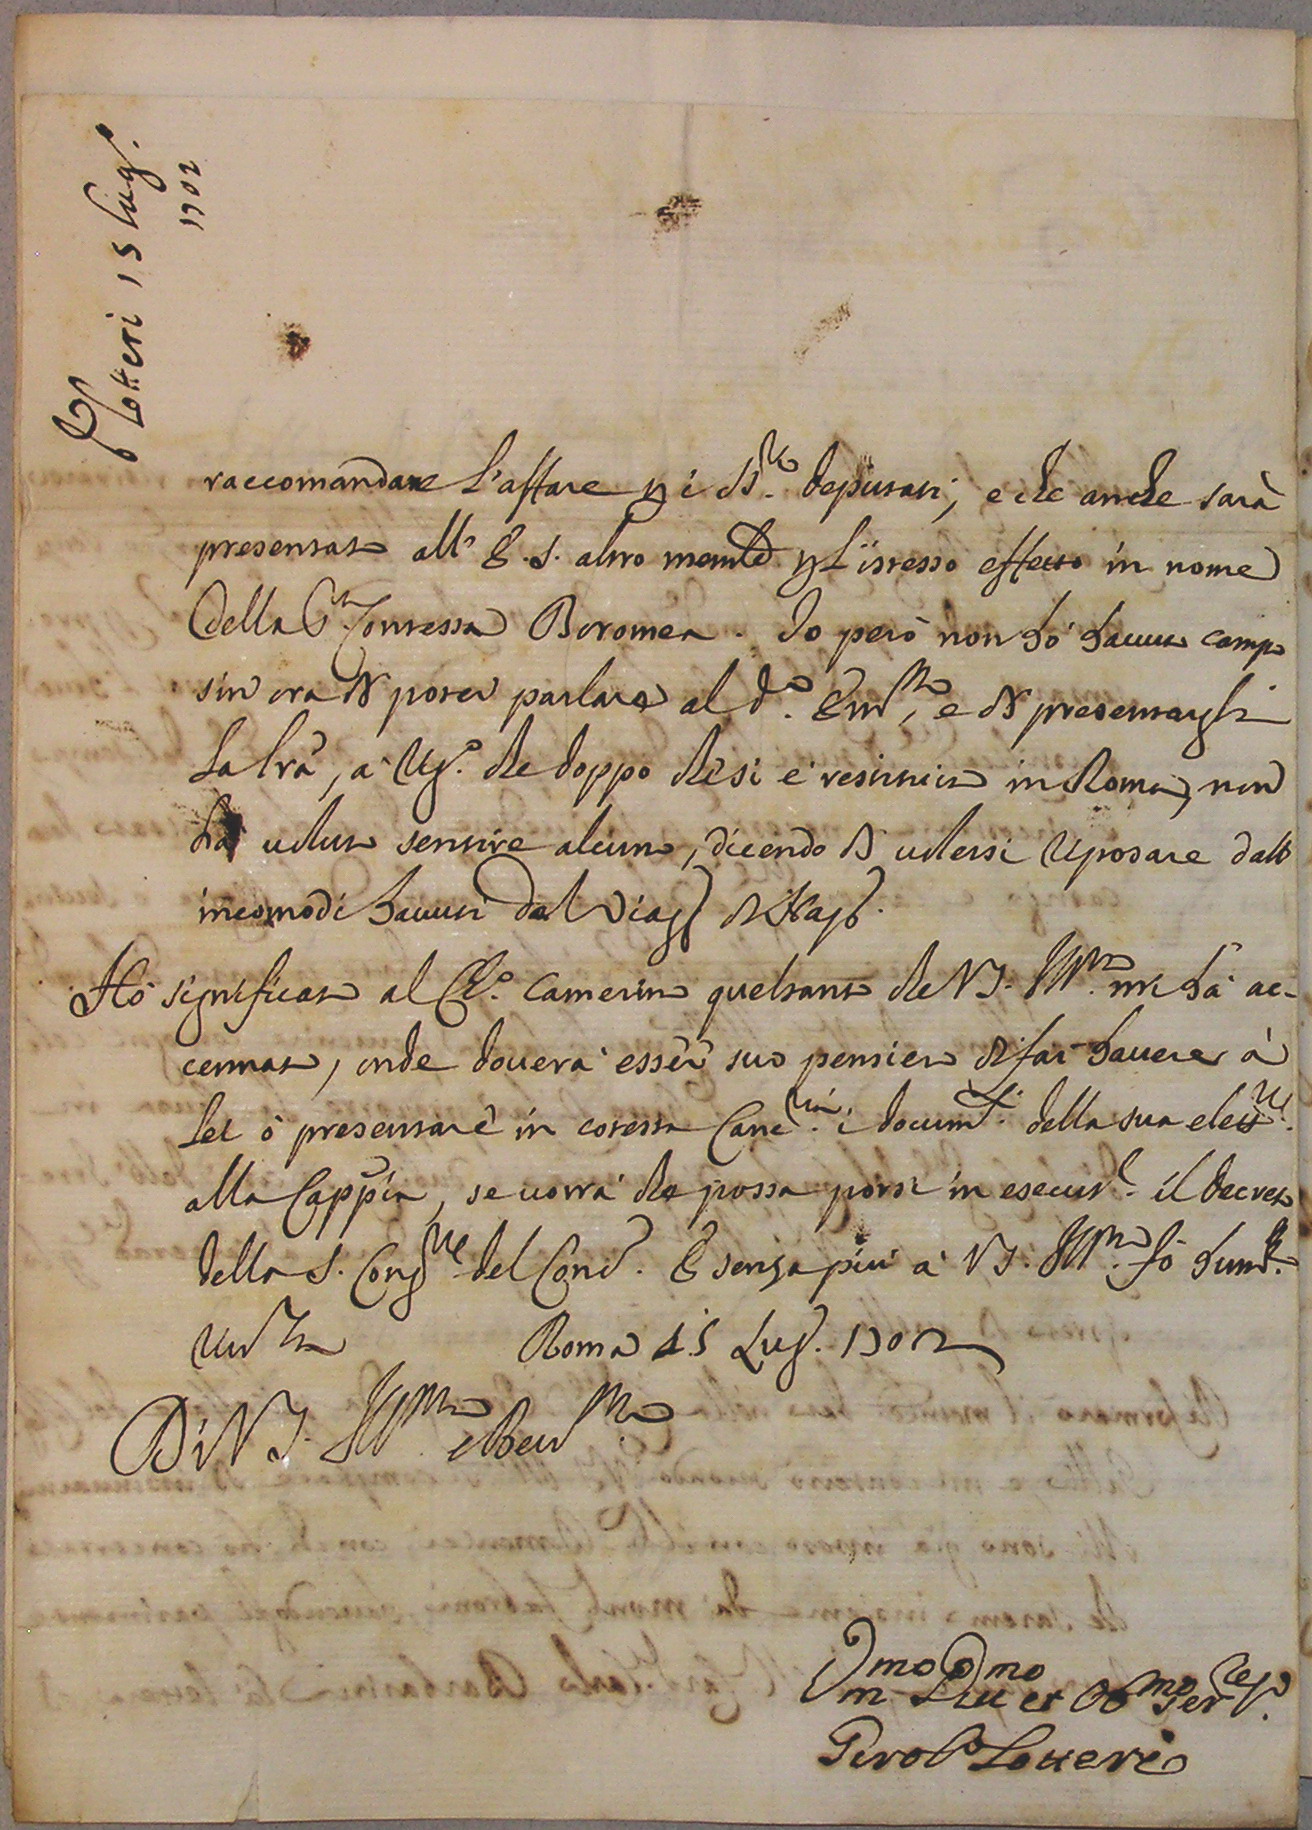 Lotteri 15 Lug.
1702
raccomandare l'affare p i SS.ri deputati, e che anche sarà
presentato all' E.S. altro memle p l'istesso effetto in nome
della Sra Contessa Boromea. Io però non hò hauuto campo
sin ora di poter parlare al do. Emmo, e di presentargli
la lra, a Ugo. che doppo che si è restituito in Roma, non
hà uoluto sentire alcuno, dicendo di uolersi riposare dalli
incomodi hauuti dal Viagg di Nap.
Hò significato al Chco. Camerino quel tanto che VS. Illma. mi hà ac-
cennato, onde douerà esser suo pensiero di far hauere à
Lei ò presentare in cotesta Cancria. i documti. della sua elettne.
alla Cappnia, se uorrà che possa porsi in esecuz. il decreto
della S. Congne del Conc. E senza più à VS. Illma. fò humma.
riuza Roma 15 Lug. 1702
Di VS. Illma. e Reuma.
Ummo Dmo
et Obmo Serre
Girolo Lotteri